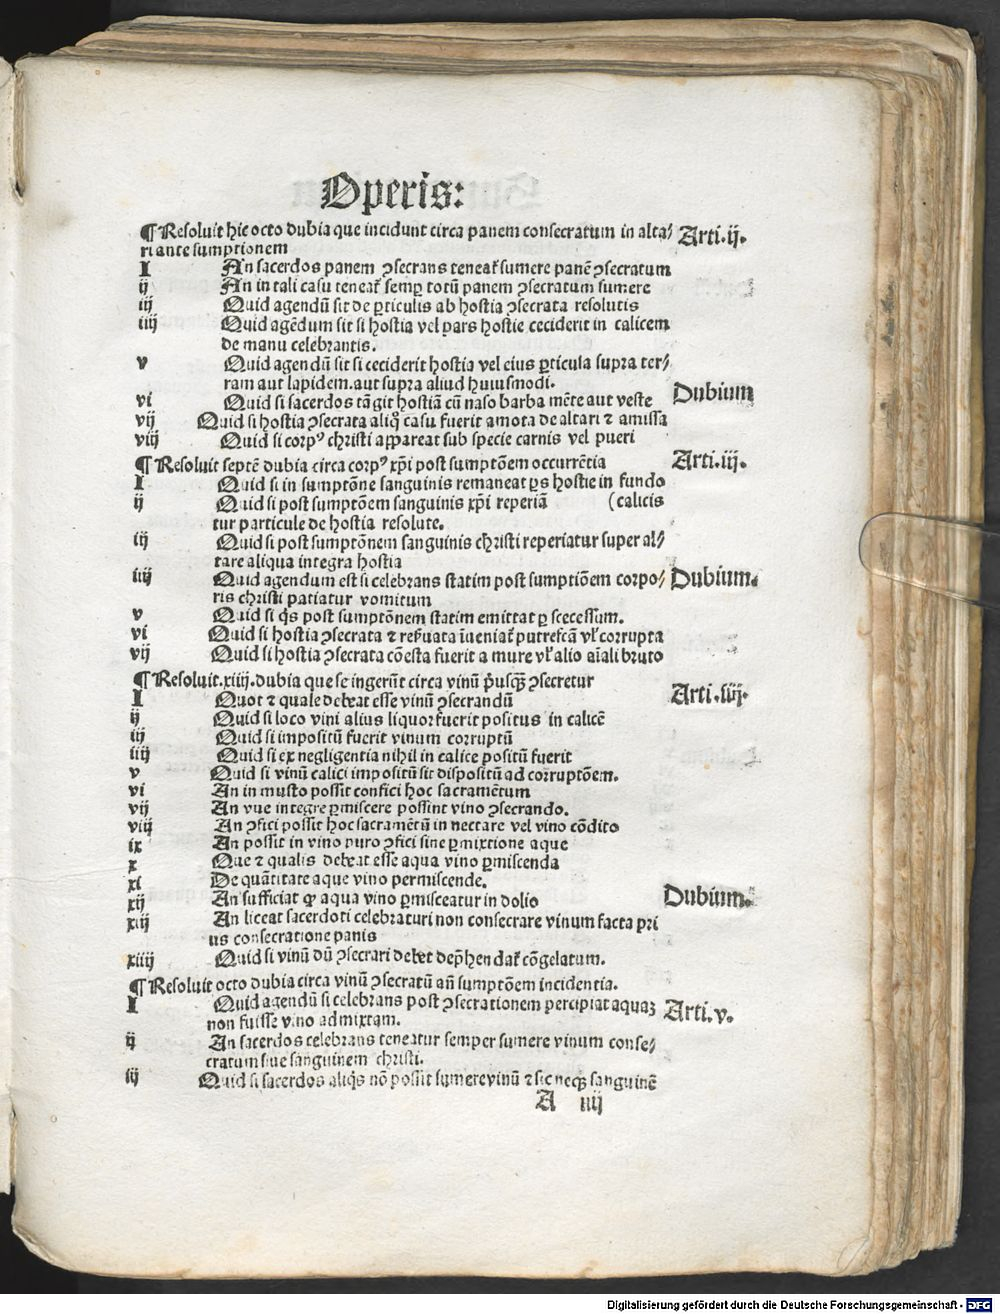 Operis:
¶ Resoluit hic octo dubia que incidunt circa panem consecratum in alta⸗ Arti.ij.
ri ante sumptionem
I An sacerdos panem ꝯsecrans teneat᷑ sumere panē ꝯsecratum
ij An in tali casu teneat᷑ semꝑ totū panem ꝯsecratum sumere
iij Quid agendū sit de ꝑticulis ab hostia ꝯsecrata resolutis
iiij Quid agēdum sit si hostia vel pars hostie ceciderit in calicem
de manu celebrantis.
v Quid agendū sit si ceciderit hostia vel eius ꝑticula supra ter⸗
ram aut lapidem. aut supra aliud huiusmodi.
Dubium
vi Quid si sacerdos tāgit hostiā cū naso barba mēte aut veste
vij Quid si hostia ꝯsecrata aliq̄ casu fuerit amota de altari ⁊ amissa
viij Quid si corpꝰ christi appareat sub specie carnis vel pueri
¶ Resoluit septē dubia circa corpꝰ xp̄i post sumptōem occurrētia Arti.iij.
I Quid si in sumptōne sanguinis remaneat ꝑs hostie in fundo
ij Quid si post sumptōem sanguinis xp̄i reperiā (calicis
tur particule de hostia resolute.
iij Quid si post sumptōnem sanguinis christi reperiatur super al⸗
tare aliqua integra hostia
iiij Quid agendum est si celebrans statim post sumptiōem corpo⸗ Dubium.
ris christi patiatur vomitum
v Quid si q̄s post sumptōnem statim emittat ꝑ secessum.
vi Quid si hostia ꝯsecrata ⁊ reẜuata īueniat᷑ putrefcā vl᷑ corrupta
vij Quid si hostia ꝯsecrata cōesta fuerit a mure vl᷑ alio aīali bruto
¶ Resoluit.xiiij.dubia que se ingerūt circa vinū p̄usqꝫ ꝯsecretur
Arti.iiij.
I Quot ⁊ quale debeat esse vinū ꝯsecrandū
ij Quid si loco vini alius liquor fuerit positus in calicē
iij Quid si impositū fuerit vinum corruptū
iiij Quid si ex negligentia nihil in calice positū fuerit
v Quid si vinū calici impositū sit dispositū ad corruptōem.
vi An in musto possit confici hoc sacramētum
vij An vue integre ꝑmiscere possint vino ꝯsecrando.
viij An ꝯfici possit hoc sacramētū in nectare vel vino cōdito
ix An possit in vino puro ꝯfici sine ꝑmixtione aque
x Que ⁊ qualis debeat esse aqua vino ꝑmiscenda
xi De quātitate aque vino permiscende.
xij An sufficiat ꝙ aqua vino ꝑmisceatur in dolio Dubium.
xiij An liceat sacerdoti celebraturi non consecrare vinum facta pri
us consecratione panis
xiiij Quid si vinū dū ꝯsecrari debet dep̄hendat᷑ cōgelatum.
¶ Resoluit octo dubia circa vinū ꝯsecratū añ sumptōem incidentia.
I Quid agendū si celebrans post ꝯsecrationem percipiat aquaꝫ Arti.v.
non fuisse vino admixtam.
ij An sacerdos celebrans teneatur semper sumere vinum conse⸗
cratum siue sanguinem christi.
iij Quid si sacerdos aliq̄s nō possit sumere vinū ⁊ sic neqꝫ sanguinē
A iiij
Digitalisierung gefördert durch die Deutsche Forschungsgemeinschaft - DFG